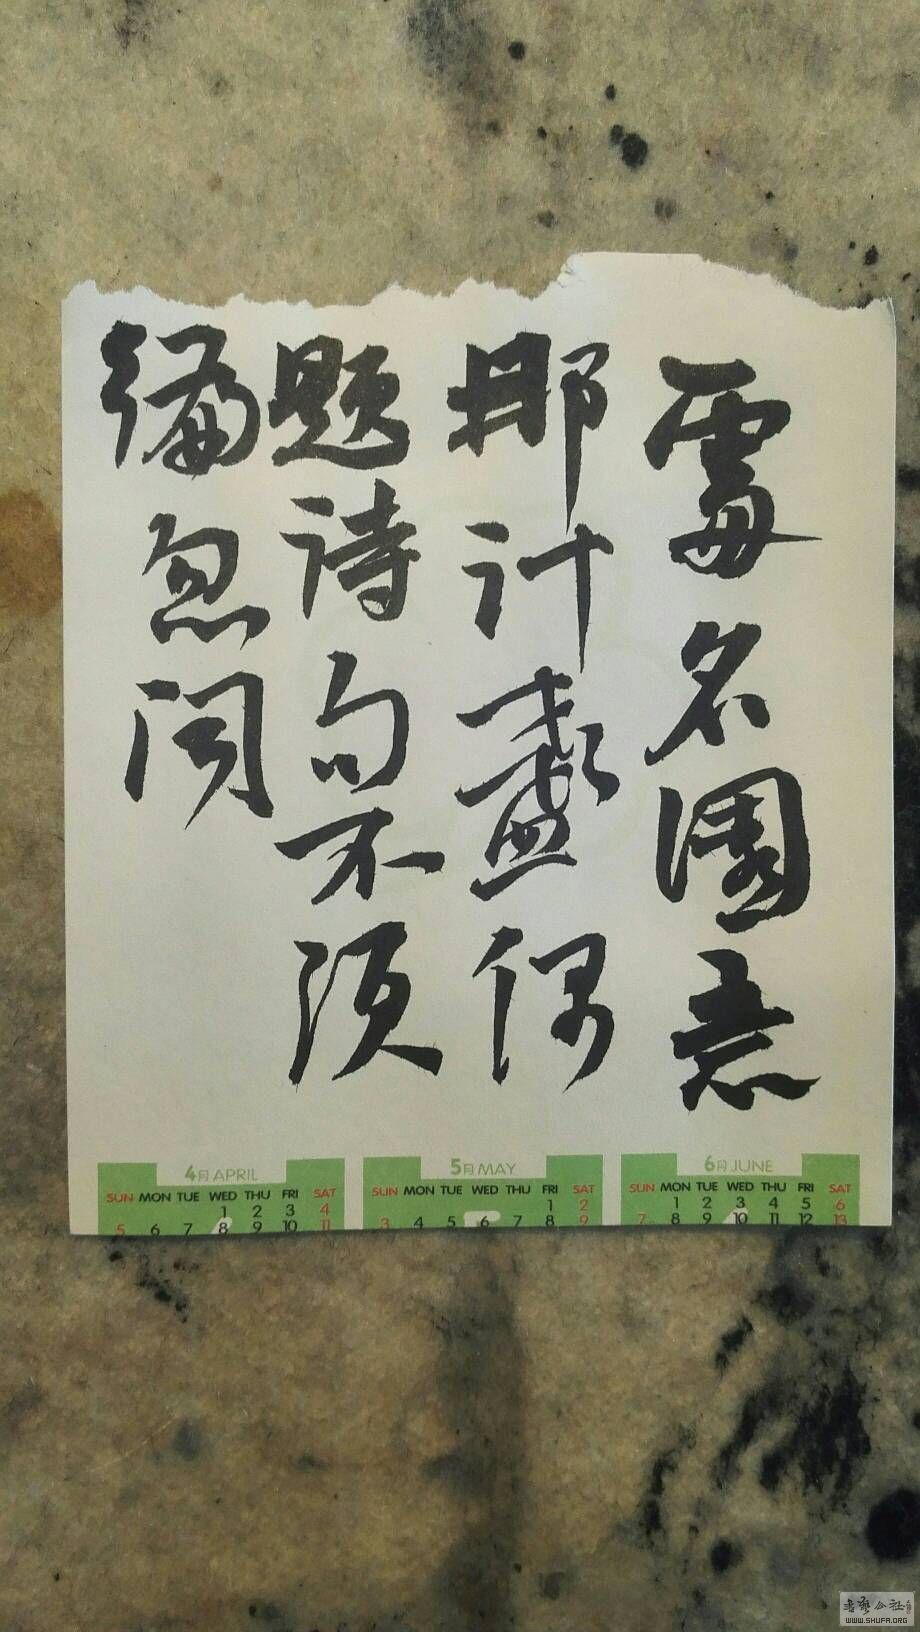 名園意
那计偶
题诗句不须
编忽闻
4月 APRIL
SUN MON TUE WED THU FRI SAT
1 2 3 4
5 6 7 8 9 10 11
5月 MAY
SUN MON TUE WED THU FRI SAT
1 2
3 4 5 6 7 8 9
6月 JUNE
SUN MON TUE WED THU FRI SAT
1 2 3 4 5 6
7 8 9 10 11 12 13
WWW.SHUFA.ORG